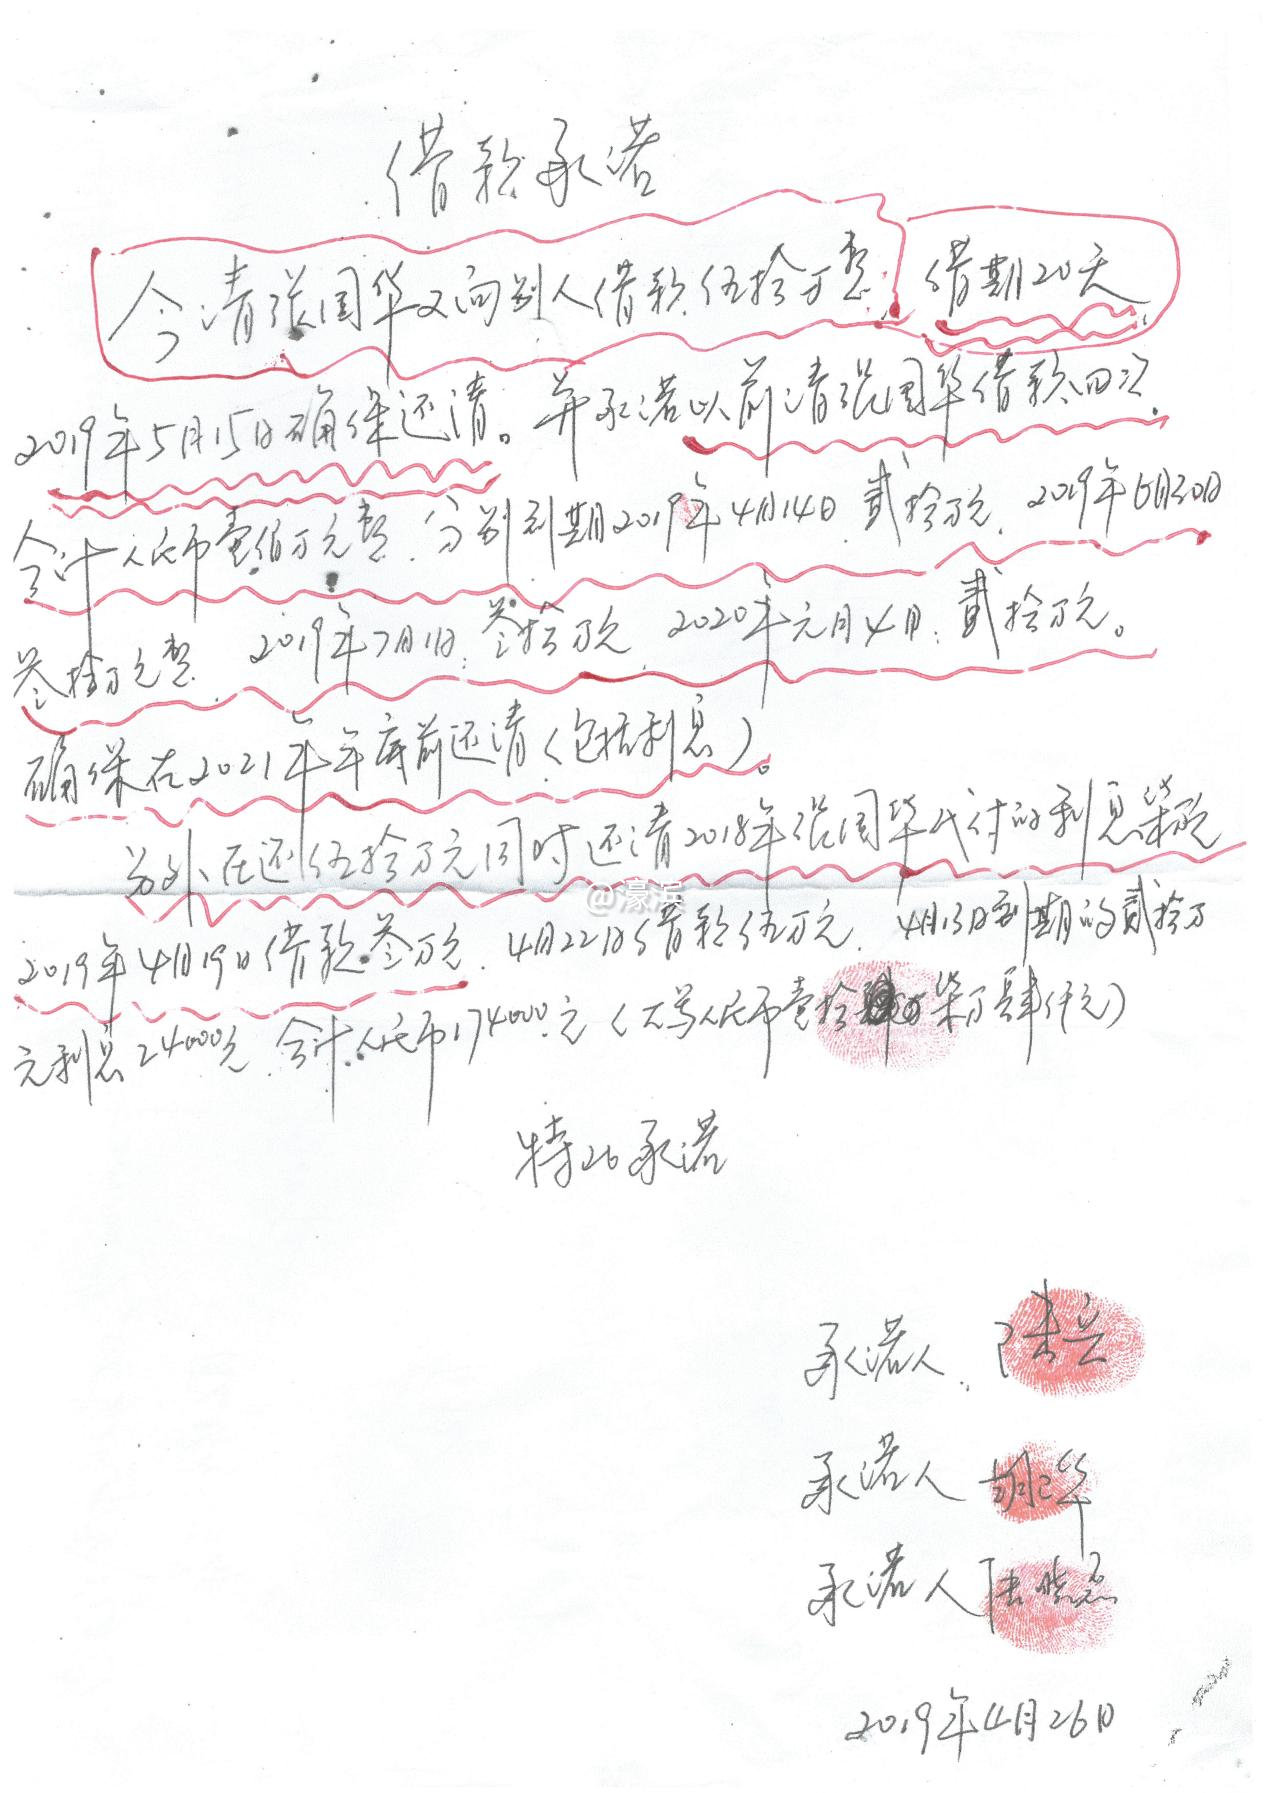 借款承诺
今请张国华又向别人借款伍拾万整 借期20天,
2019年5月15日确保还清。并承诺以前请张国华借款四次.
合计人民币壹佰万元整.分别到期2019年4月14日 贰拾万元. 2019年6月30日
叁拾万元整. 2019年7月1日:叁拾万元. 2020年元月4日:贰拾万元。
确保在2021年年底前还清(包括利息)。
另外在还伍拾万元同时还清2018年张国华代付的利息柒万元
@濠浜
2019年4月19日借款叁万元. 4月22日借款伍万元. 4月13日到期的贰拾万
元利息24000元.合计人民币174000.元(大写人民币壹拾柒万肆仟元)
特此承诺
承诺人. 陈立
承诺人 胡华
承诺人 陆
2019年4月26日